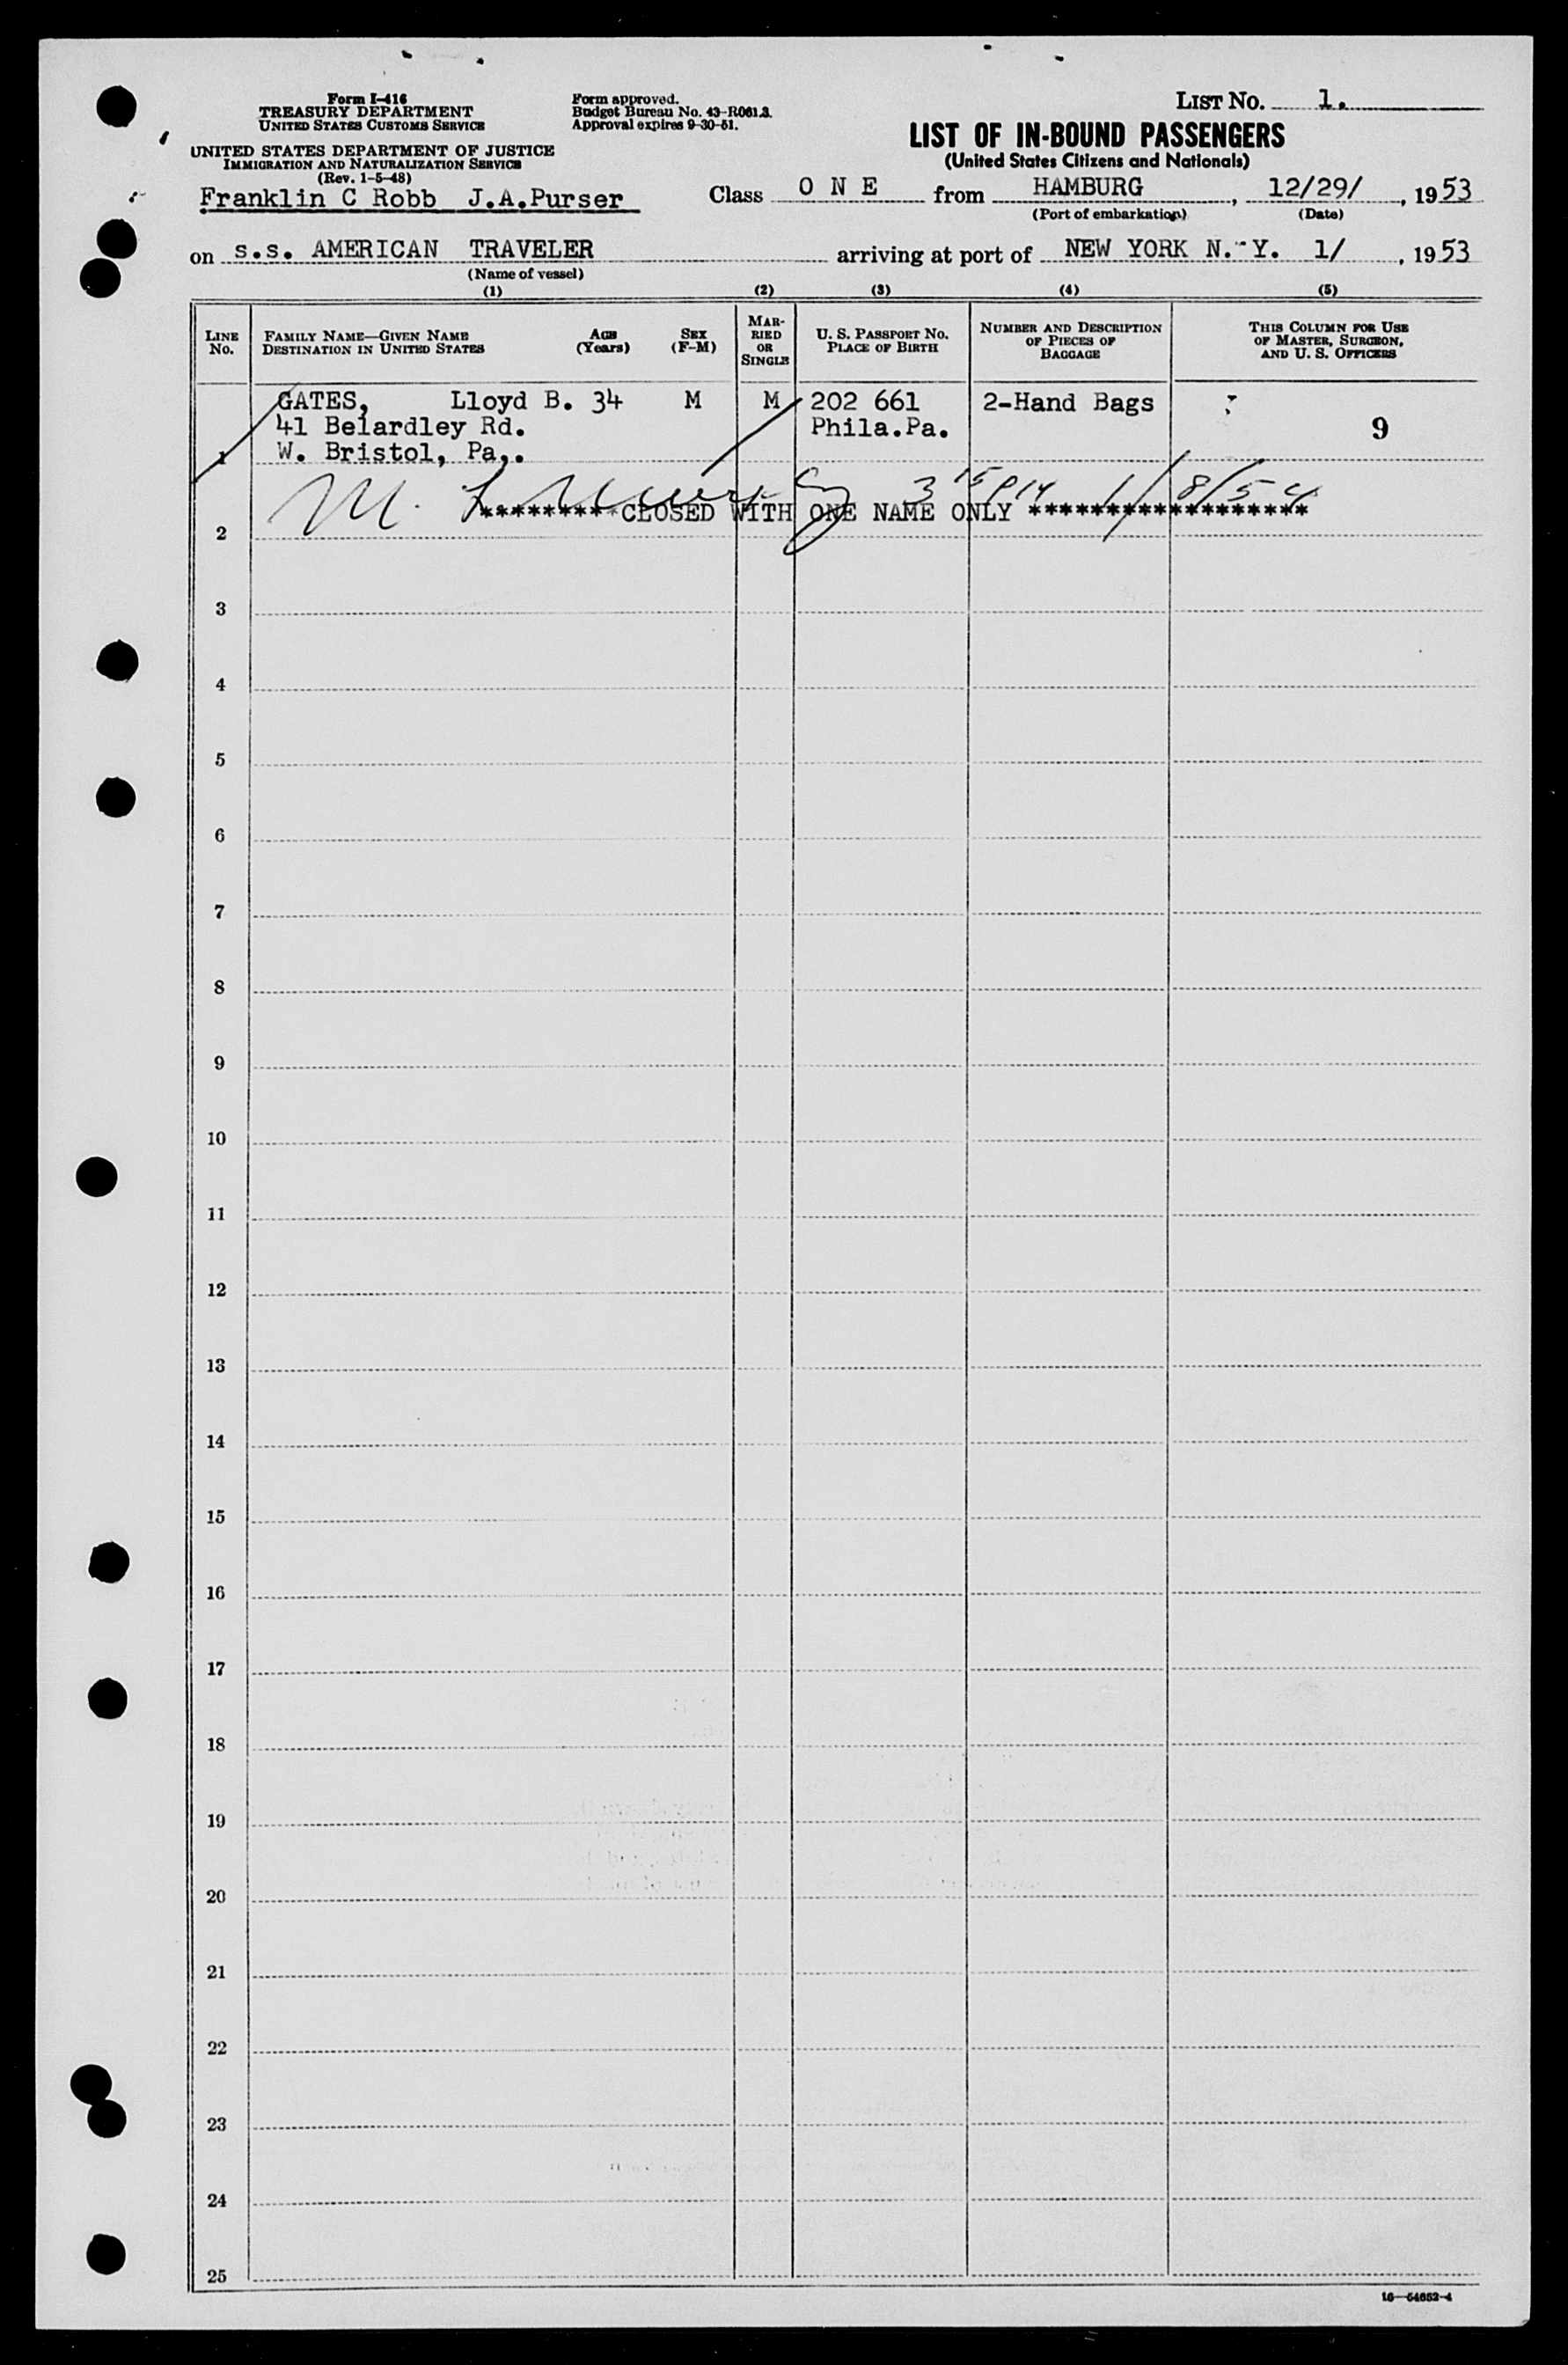 Form I-416
TREASURY DEPARTMENT
UNITED STATES CUSTOMS SERVICE
Form approved.
Budget Bureau No. 43-R061.3.
Approval expires 9-30-51.
LIST NO. 1.
UNITED STATES DEPARTMENT OF JUSTICE
IMMIGRATION AND NATURALIZATION SERVICE
(Rev. 1-5-48)
LIST OF IN-BOUND PASSENGERS
(United States Citizens and Nationals)
Franklin C Robb J.A.Purser
Class O N E from HAMBURG, 12/29/, 1953
(Port of embarkation) (Date)
on s.s. AMERICAN TRAVELER arriving at port of NEW YORK N. Y. 1/, 1953
(Name of vessel)
(1) (2) (3) (4) (5)
LINE No.
FAMILY NAME—GIVEN NAME
DESTINATION IN UNITED STATES
AGE (Years)
SEX (F-M)
MARRIED OR SINGLE
U. S. PASSPORT NO.
PLACE OF BIRTH
NUMBER AND DESCRIPTION OF PIECES OF BAGGAGE
THIS COLUMN FOR USE OF MASTER, SURGEON, AND U. S. OFFICERS
GATES, Lloyd B. 34 M M 202 661 2-Hand Bags
41 Belardley Rd. Phila.Pa. 9
1 W. Bristol, Pa,.
1/8/54
2 *********CLOSED WITH ONE NAME ONLY ******************
3
4
5
6
7
8
9
10
11
12
13
14
15
16
17
18
19
20
21
22
23
24
25
16—54652-4